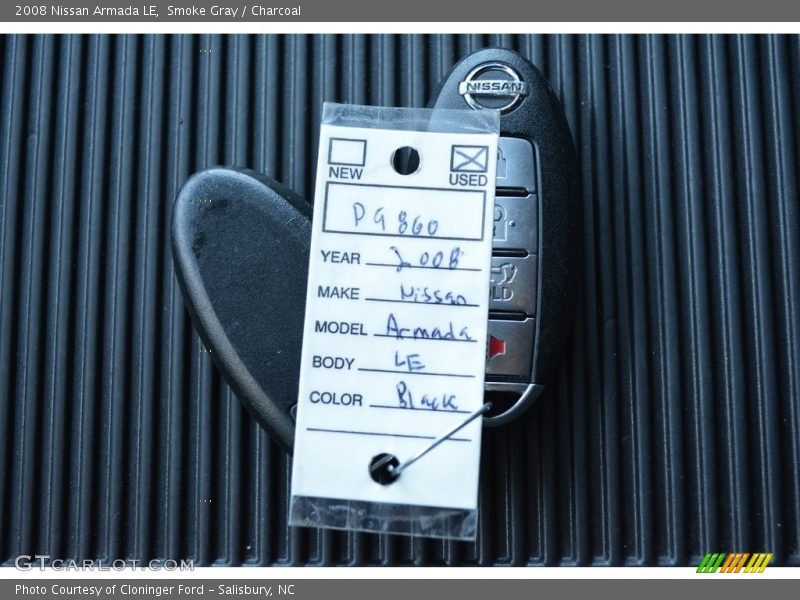 2008 Nissan Armada LE, Smoke Gray / Charcoal
NISSAN
NEW
USED
P9860
YEAR 2008
MAKE Nissan
MODEL Armada
BODY LE
COLOR Black
GTCARLOT.COM
Photo Courtesy of Cloninger Ford - Salisbury, NC